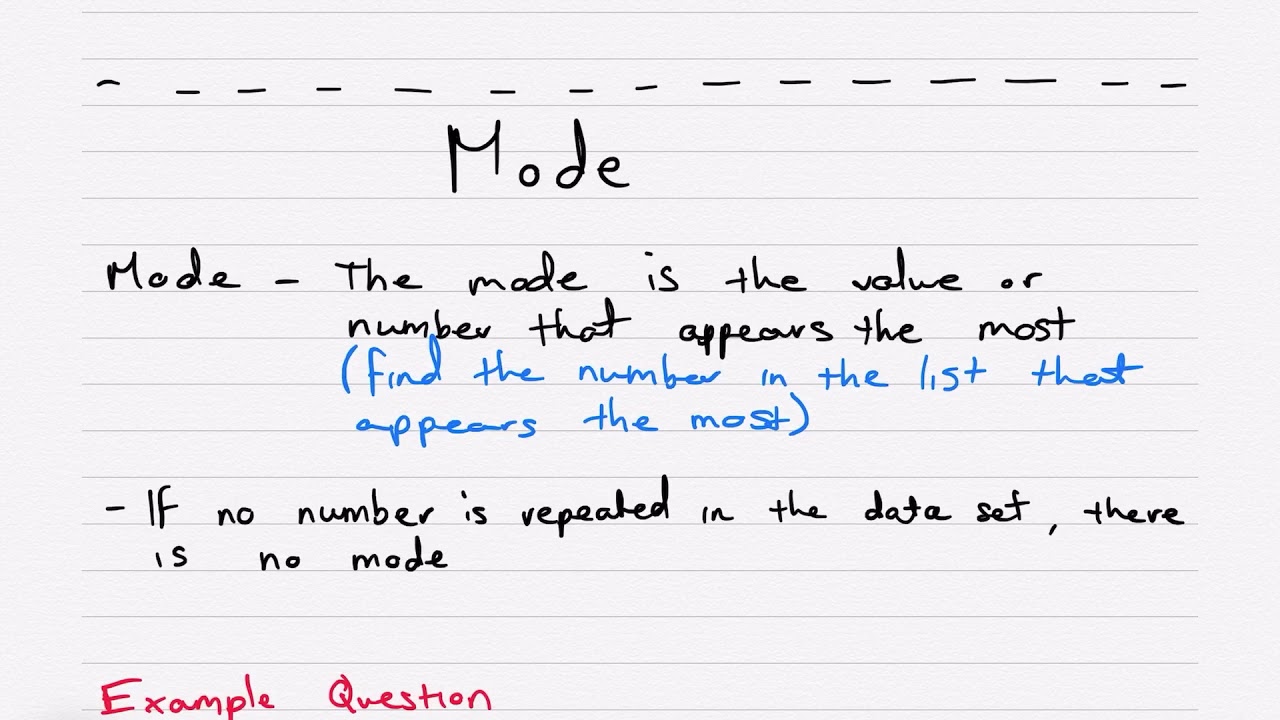 Mode
Mode - The mode is the value or
number that appears the most
(find the number in the list that
appears the most)
- If no number is repeated in the data set, there
is no mode
Example Question